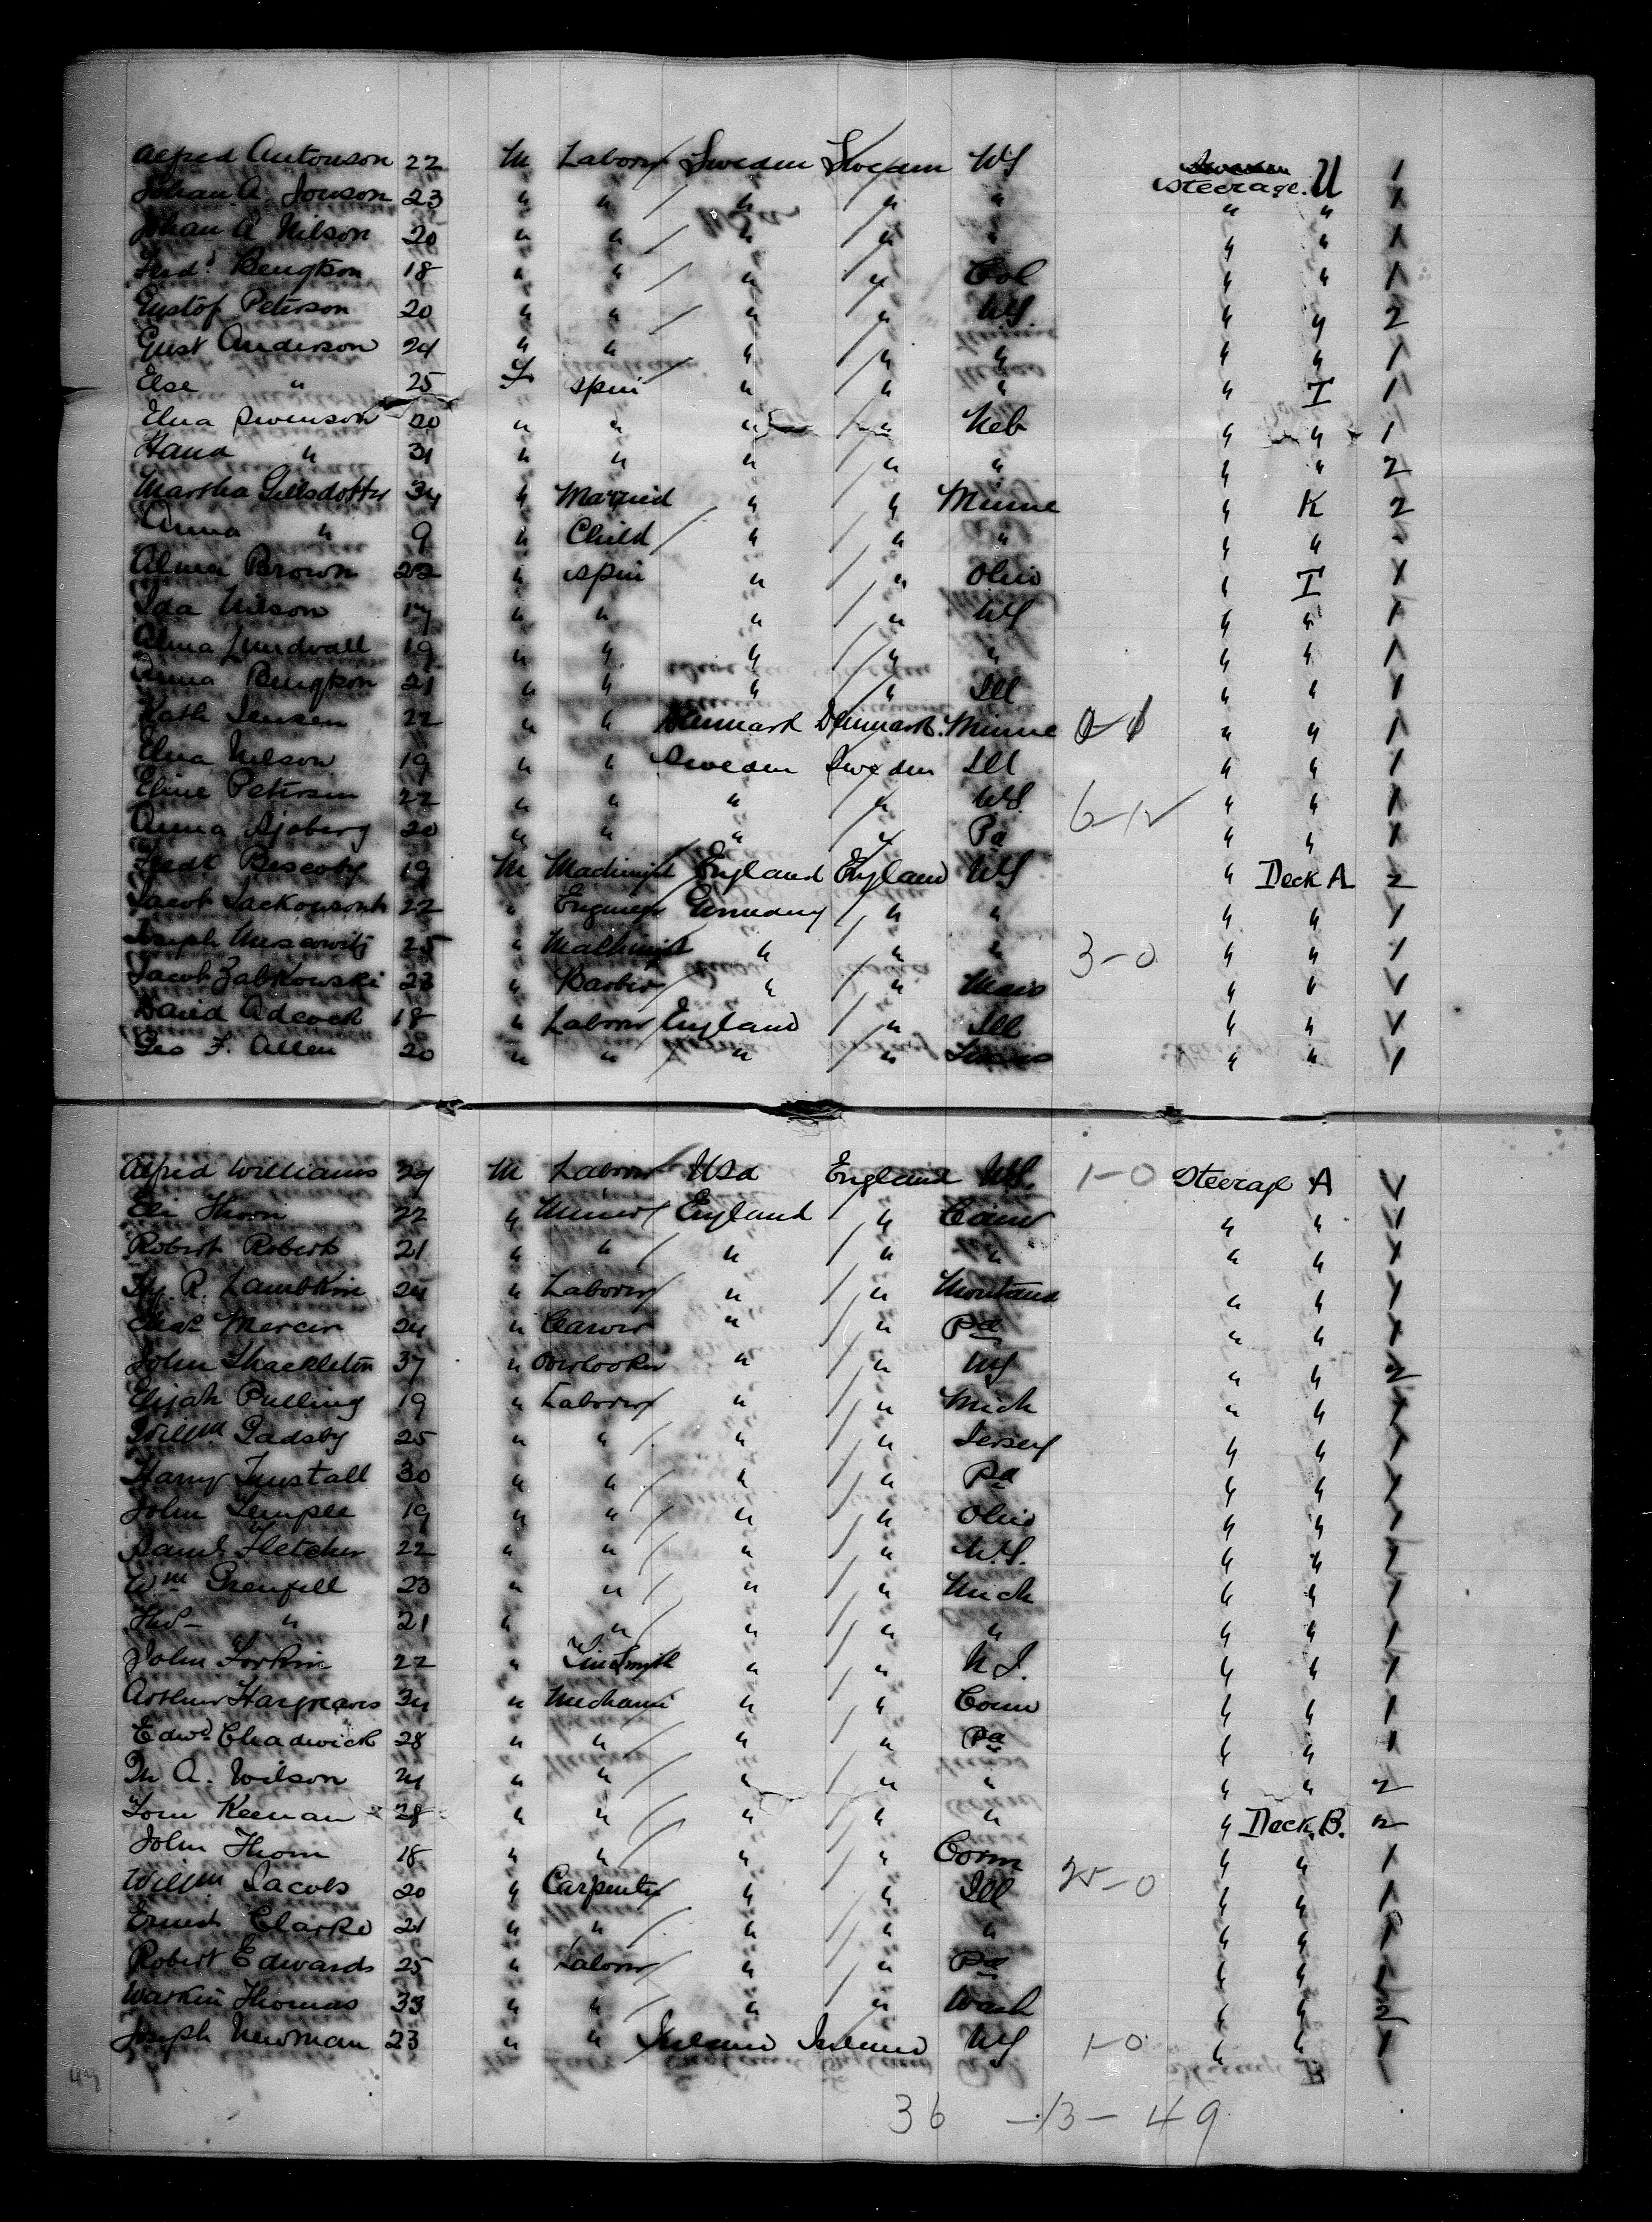 Alfred Antonson 22 M Laborer Sweden Sweden NY Steerage. U 1
Johan A. Jonson 23 " " " " " " " 1
Johan A Nilson 20 " " " " " " " 1
Bengtson 18 " " " " Col " " 1
Gustof Peterson 20 " " " " NY. " " 2
Gust Anderson 24 " " " " " " " 1
Else " 25 F spin " " " " I 1
Elna Swenson 20 " " " " Neb " " 1
Hana " 31 " " " " " " " 2
Martha Gillsdotter 34 " Married " " Minne " K 2
Anna " 9 " Child " " " " "
Alma Brown 22 " spin " " Ohio " I 1
Ida Nilson 17 " " " " NY " " 1
Alma Lundvall 19 " " " " " " " 1
Anna Bengtson 21 " " " " Ill " " 1
Kath Jensen 22 " " Denmark Denmark. Minne 0-1 " " 1
Elna Nilson 19 " " Sweden Sweden Ill " " 1
Eline Petersen 22 " " " " NY. 6-12 " " 1
Anna Sjoberg 20 " " " " Pa " " 1
Fredk Bescoby 19 M Machinist England England NY " Deck A 2
Jacob 22 " Engineer Germany " " " " 1
Joseph Moscowitz 25 " Machinist " " " 3-0 " " 1
Jacob Zabkowski 23 " Barber " " Mass " " 1
David Adcock 18 " Laborer England " Ill " " 1
Geo F. Allen 20 " " " " " " 1
Alfred Williams 29 M Laborer USA England NY. 1-0 Steerage A 1
Eli Thorn 22 " Miner England " Conn " " 1
Robert Roberts 21 " " " " " " " 1
Hy. R. Lambkin 24 " Laborer " " Montana " " 1
Chas Mercer 24 " Carver " " Pa " " 1
John Shackleton 37 " Overlooker " " NY " " 2
Elijah Pulling 19 " Laborer " " Mich " " 1
Willm Gadsby 25 " " " " Jersey " " 1
Harry Tunstall 30 " " " " Pa " " 1
John Temple 19 " " " " Ohio " " 1
Saml Fletcher 22 " " " " N.Y. " " 1
Wm Grenfell 23 " " " " Mich " " 1
Thos " 21 " " " " " " " 1
John Larkin 22 " Tinsmith " " N J. " " 1
Arthur Hargreaves 34 " Mechanic " " Conn " " 1
Edwd Chadwick 28 " " " " Pa " " 1
M A. Wilson 24 " " " " " " " 2
Tom Keenan 28 " " " " " " Deck. B. 2
John Thorn 18 " " " " Conn " " 1
Willm Jacobs 20 " Carpenter " " Ill 25-0 " " 1
Ernest Clarke 21 " " " " " " " 1
Robert Edwards 25 " Laborer " " Pa " " 1
Watkin Thomas 33 " " " " Wash " " 2
Joseph Newman 23 " " Ireland Ireland NY 1-0 " " 1
49
36 -13- 49